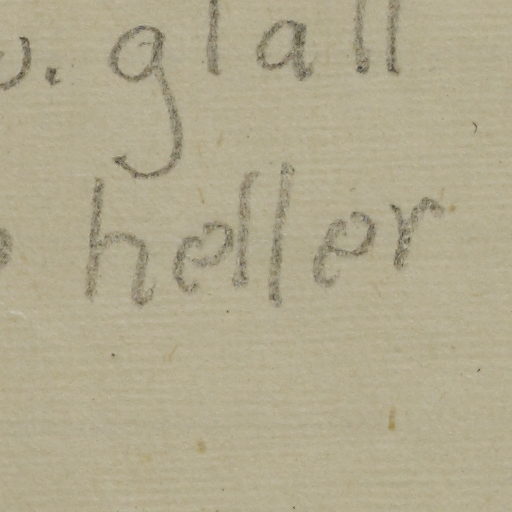 . glall
heller